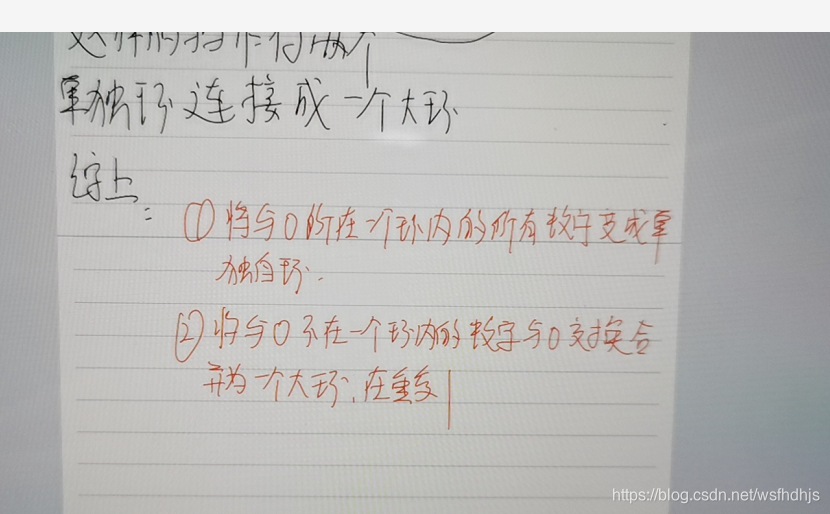 这样的操作将两个
单独环连接成一个大环
综上:
①将与0所在一个环内的所有数字变成单
独自环.
②将与0不在一个环内的数字与0交换合
并为一个大环,在重复1
https://blog.csdn.net/wsfhdhjs